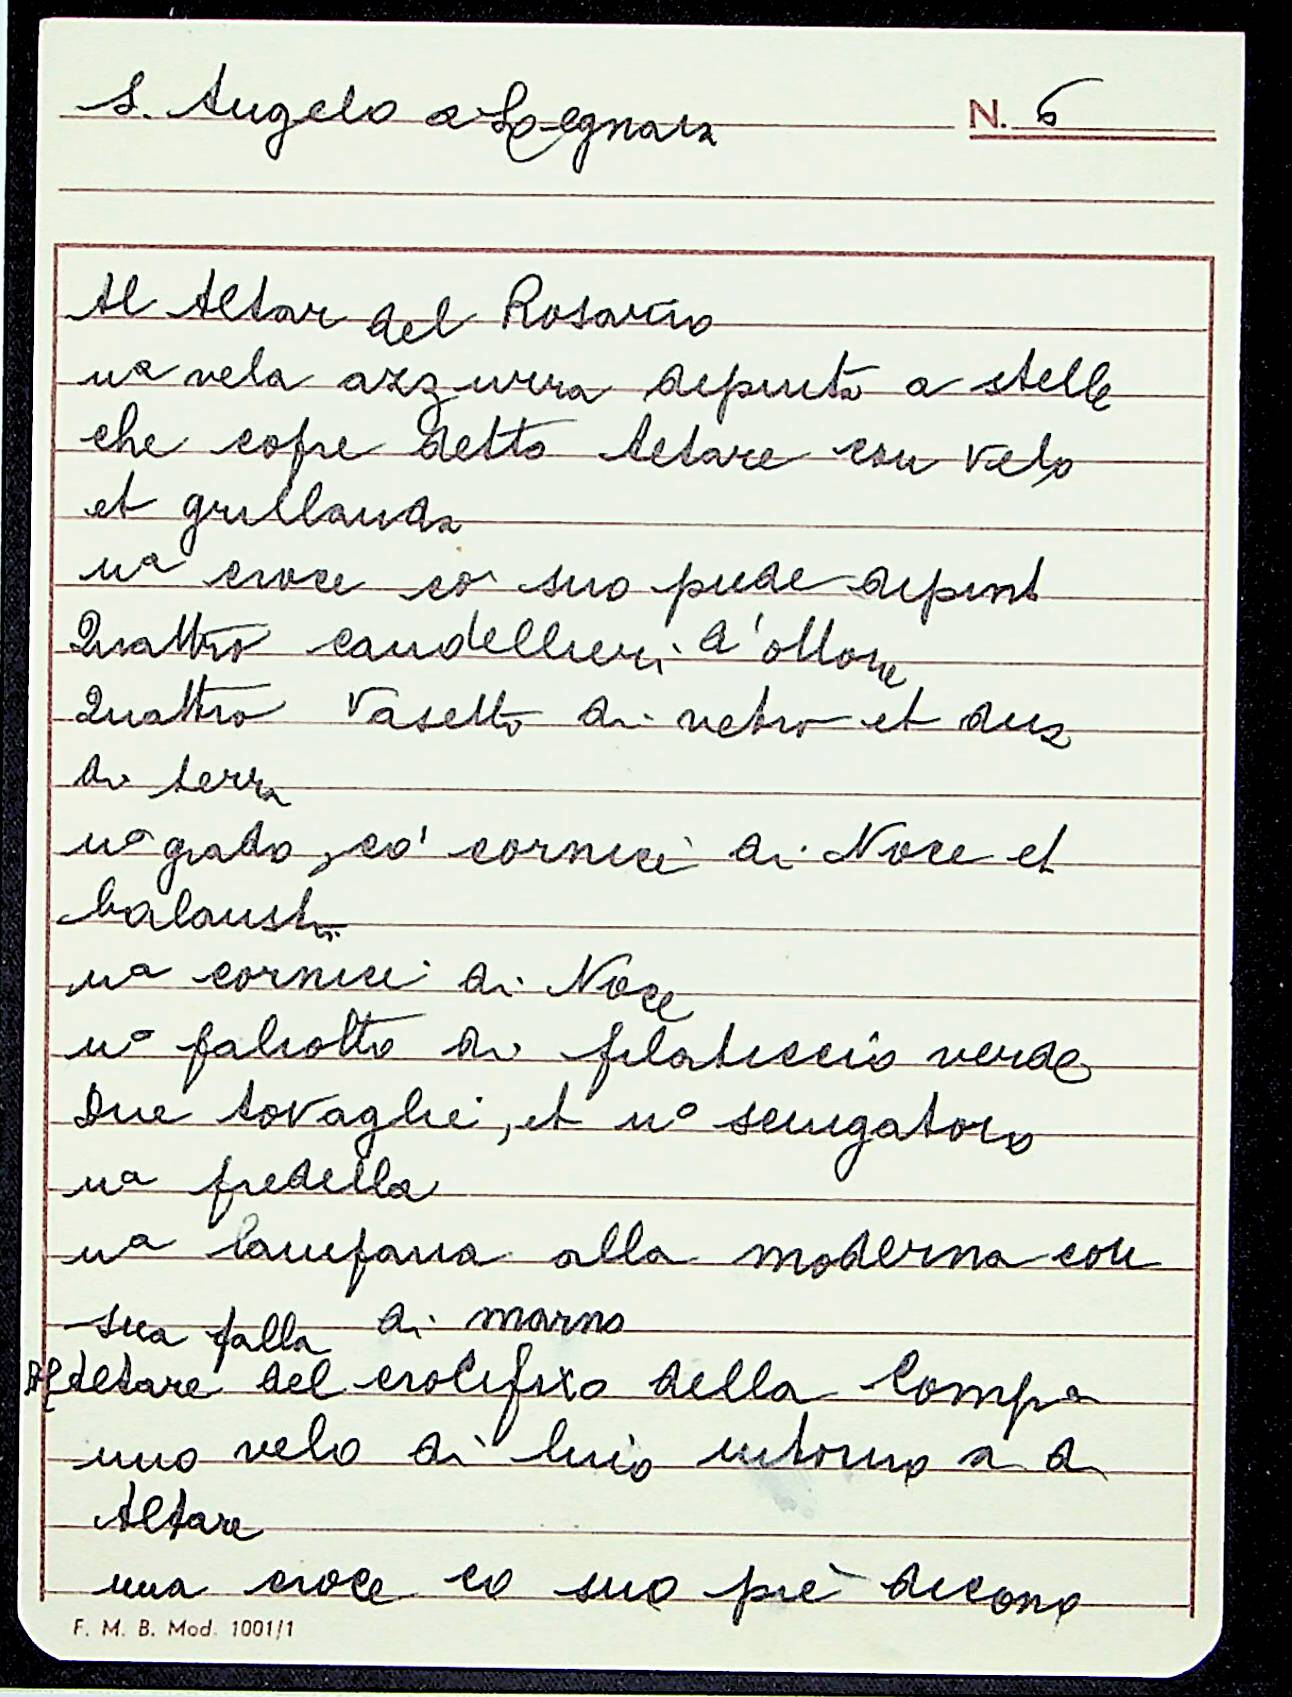 S. Angelo a Legnaia
N. 6
Al Altar del Rosario
nª vela azzurra depinta a stelle
che copre detto Altare con velo
et grillanda
nª croce cō suo piede depint
Quattro candellieri d'ottone
Quattro Vasetto di vetro et dua
di terra
nº grado, co' cornici di Noce et
balaustri
nª cornici di Noce
nº paliotto di filaticcio verde
Due tovaglie, et nº sciugatoro
nª predella
nª lampana alla moderna con
sua palla di marmo
Al Altare del crocifixo della Compª
uno velo di lino intorno a d
Altare
una croce co suo piè dicono
F. M. B. Mod. 1001/1